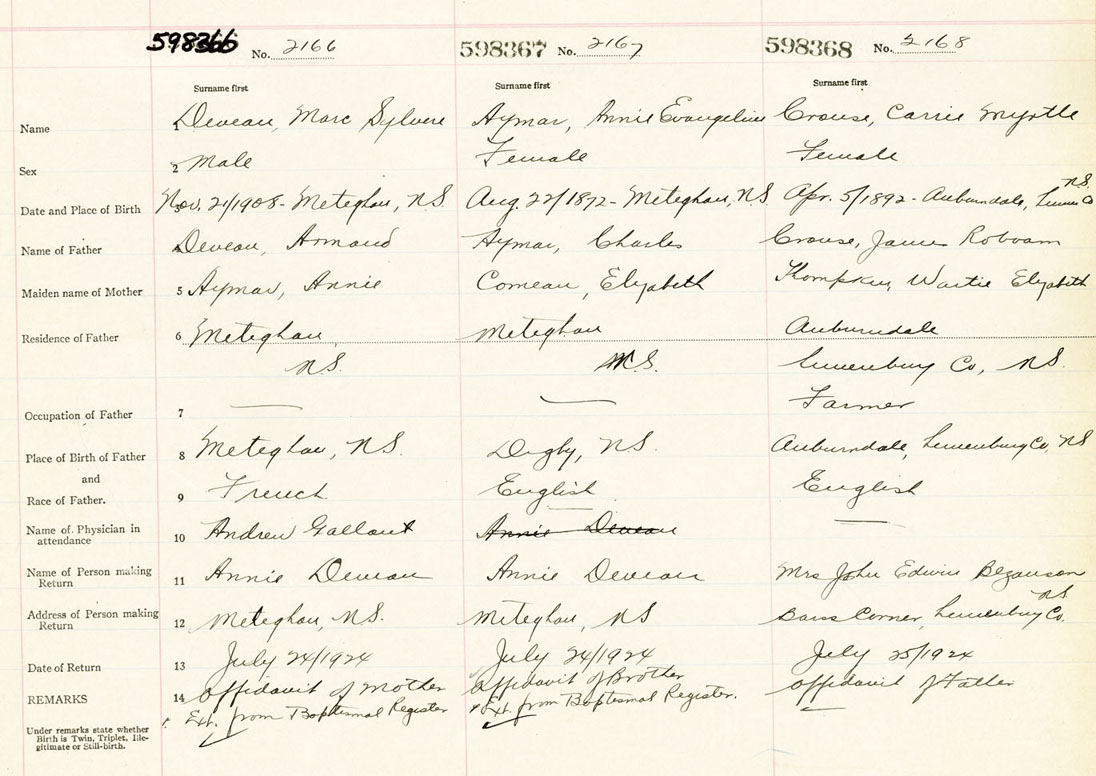 598366 No. 2166 598367 No. 2167 598368 No. 2168
Surname first Surname first Surname first
Name 1 Deveau, Marc Sylvere Aymar, Annie Evangeline Crouse, Carrie Myrtle
Sex 2 Male Female Female
N.S.
Date and Place of Birth 3 Nov. 21/1908 - Meteghan, N.S Aug. 22/1872 - Meteghan, N.S. Apr. 5/1892 - Auburndale, Lunen Co
Name of Father 4 Deveau, Armand Aymar, Charles Crouse, James Roboam
Maiden name of Mother 5 Aymar, Annie Comeau, Elizabeth Elizabeth
Residence of Father 6 Meteghan, Meteghan Auburndale
N.S. N.S. Lunenburg Co, N.S.
Occupation of Father 7 — — Farmer
Place of Birth of Father 8 Meteghan, N.S. Digby, N.S. Auburndale, Lunenburg Co, N.S
and
Race of Father. 9 French English English
Name of Physician in
attendance 10 Andrew Gallant Annie Deveau —
Name of Person making
Return 11 Annie Deveau Annie Deveau Mrs John Edwin Bezanson
N.S.
Address of Person making
Return 12 Meteghan, N.S. Meteghan, N.S Barss Corner, Lunenburg Co.
Date of Return 13 July 24/1924 July 24/1924 July 25/1924
REMARKS 14 Affidavit of Mother Affidavit of Brother Affidavit of Father
Ext. from Baptismal Register Ext. from Baptismal Register.
Under remarks state whether
Birth is Twin, Triplet, Ille-
gitimate or Still-birth.